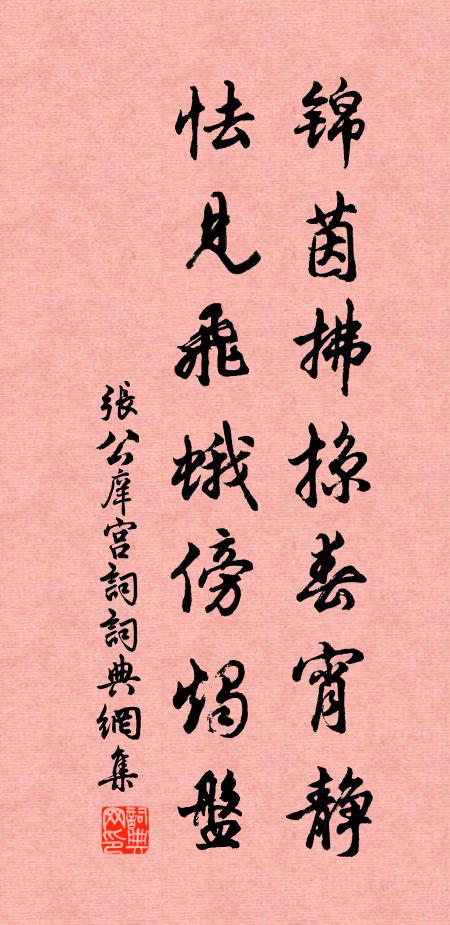 锦茵拂掠春宵静
怯见飛蛾傍燭盤
張公庠宫詞詞典網集
詞典网印